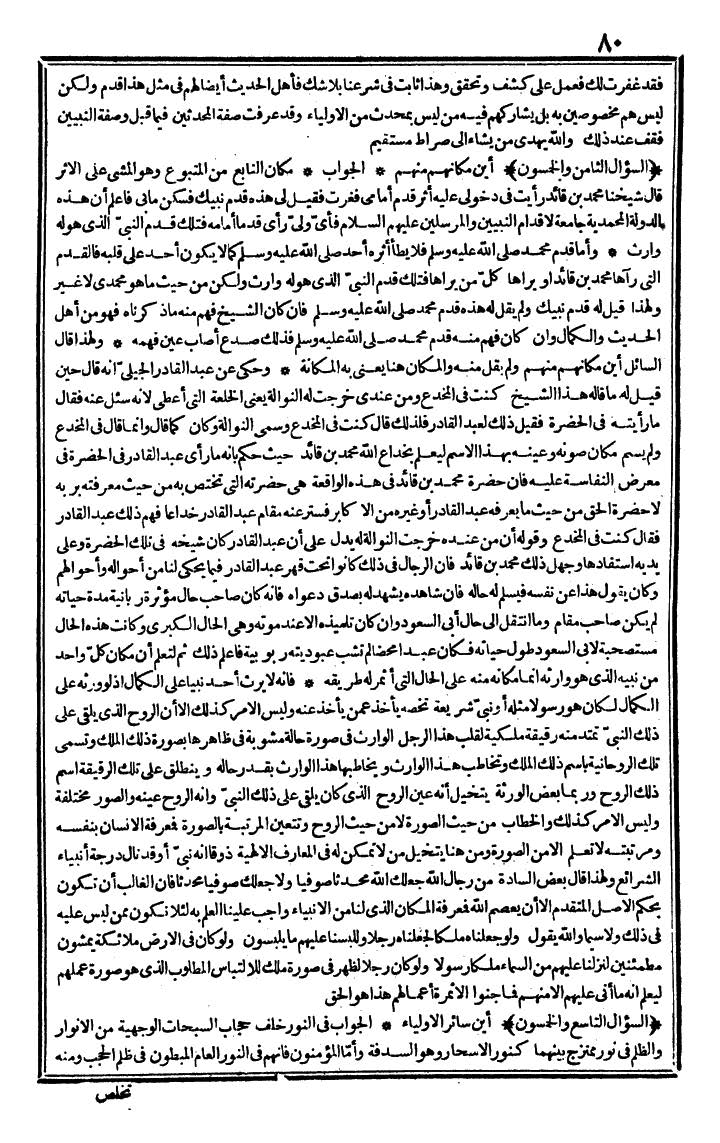 ٨٠
فقد غفرت لك فعمل على كشف وتحقق وهذا ثابت فى شرعنا بلا شك فأهل الحديث أيضا لهم فى مثل هذا قدم ولكن
ليس هم مخصوصين به بل يشاركهم فيه من ليس بمحدث من الاولياء وقد عرفت صفة المحدثين فيما قبل وصفة النبيين
فقف عند ذلك والله يهدى من يشاء الى صراط مستقيم
﴿السؤال الثامن والخمسون﴾ أين مكانهم منهم * الجواب * مكان التابع من المتبوع وهو المشى على الاثر
قال شيخنا محمد بن قائد رأيت فى دخولى عليه أثر قدم أمامى فغرت فقيل لى هذه قدم نبيك فسكن مابى فاعلم أن هذه
الدولة المحمدية جامعة لاقدام النبيين والمرسلين عليهم السلام فأى ولىّ رأى قدما أمامه فتلك قدم النبىّ الذى هو له
وارث * وأما قدم محمد صلى الله عليه وسلم فلا يطأ أثره أحد صلى الله عليه وسلم كما لا يكون أحد على قلبه فالقدم
التى رآها محمد بن قائد أو يراها كلّ من يراها فتلك قدم النبىّ الذى هو له وارث ولكن من حيث ما هو محمدى لا غير
ولهذا قيل له قدم نبيك ولم يقل له هذه قدم محمد صلى الله عليه وسلم فان كان الشيخ فهم منه ما ذكرناه فهو من أهل
الحديث والكمال وان كان فهم منه قدم محمد صلى الله عليه وسلم فذلك صدع أصاب عين فهمه * ولهذا قال
السائل أين مكانهم منهم ولم يقل منه والمكان هنا يعنى به المكانة * وحكى عن عبد القادر الجيلىّ انه قال حين
قيل له ما قاله هذا الشيخ كنت فى المخدع ومن عندى خرجت له النوالة يعنى الخلعة التى أعطى لانه سئل عنه فقال
ما رأيته فى الحضرة فقيل ذلك لعبد القادر فلذلك قال كنت فى المخدع وسمى النوالة وكان كما قال وانما قال فى المخدع
ولم يسم مكان صونه وعينه بهذا الاسم ليعلم بخداع الله محمد بن قائد حيث حكم بانه ما رأى عبد القادر فى الحضرة فى
معرض النفاسة عليه فان حضرة محمد بن قائد فى هذه الواقعة هى حضرته التى تختص به من حيث معرفته بربه
لا حضرة الحق من حيث ما يعرفه عبد القادر أو غيره من الاكابر فستر عنه مقام عبد القادر خداعا فهم ذلك عبد القادر
فقال كنت فى المخدع وقوله أن من عنده خرجت النوالة له يدل على أن عبد القادر كان شيخه فى تلك الحضرة وعلى
يديه استفادها وجهل ذلك محمد بن قائد فان الرجال فى ذلك كانوا تحت قهر عبد القادر فيما يحكى لنا من أحواله وأحوالهم
وكان يقول هذا عن نفسه فيسلم له حاله فان شاهده يشهد له بصدق دعواه فانه كان صاحب حال مؤثرة ربانية مدة حياته
لم يكن صاحب مقام وما انتقل الى حال أبى السعود وان كان تلميذه الا عند موته وهى الحال الكبرى وكانت هذه الحال
مستصحبة لابى السعود طول حياته فكان عبدا محضا لم تشب عبوديته ربوبية فاعلم ذلك ثم لتعلم أن مكان كلّ واحد
من نبيه الذى هو وارثه انما مكانه منه على الحال التى أثمر له طريقه * فانه لا يرث أحد نبيا على الكمال اذ لو ورثه على
الكمال لكان هو رسولا مثله أو نبىّ شريعة تخصه يأخذ عمن يأخذ عنه وليس الامر كذلك الا أن الروح الذى يلقى على
ذلك النبىّ تمتد منه رقيقة ملكية لقلب هذا الرجل الوارث فى صورة حالة مشوبة فى ظاهرها بصورة ذلك الملك وتسمى
تلك الروحانية باسم ذلك الملك وتخاطب هذا الوارث ويخاطبها هذا الوارث بقدر حاله وينطلق على تلك الرقيقة اسم
ذلك الروح وربما بعض الورثة يتخيل أنه عين الروح الذى كان يلقى على ذلك النبىّ وانه الروح عينه والصور مختلفة
وليس الامر كذلك والخطاب من حيث الصورة لا من حيث الروح وتتعين المرتبة بالصورة فمعرفة الانسان بنفسه
ومرتبته لا تعلم الا من الصورة ومن هنا يتخيل من لا تمكن له فى المعارف الالهية ذوقا انه نبىّ أو قد نال درجة أنبياء
الشرائع ولهذا قال بعض السادة من رجال الله جعلك الله محدثا صوفيا ولا جعلك صوفيا محدثا فان الغالب أن تكون
بحكم الاصل المتقدم الا أن يعصم الله فمعرفة المكان الذى لنا من الانبياء واجب علينا العلم به لئلا نكون ممن لبس عليه
فى ذلك ولا سيما والله يقول ولو جعلناه ملكا لجعلناه رجلا وللبسنا عليهم ما يلبسون ولو كان فى الارض ملائكة يمشون
مطمئنين لنزلنا عليهم من السماء ملكا رسولا ولو كان رجلا لظهر فى صورة ملك للالتباس المطلوب الذى هو صورة عملهم
ليعلم انه ما أتى عليهم الا منهم فما جنوا الا ثمرة أعمالهم هذا هو الحق
﴿السؤال التاسع والخمسون﴾ أين سائر الاولياء * الجواب فى النور خلف حجاب السبحات الوجهية من الانوار
والظلم فى نور ممتزج بينهما كنور الاسحار وهو السدفة وأمّا المؤمنون فانهم فى النور العام المبطون فى ظلم الحجب ومنه
تخلص